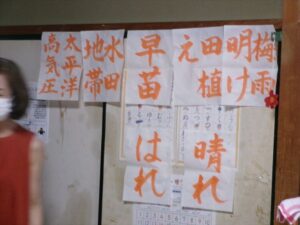 梅雨
明け
田植
え
早苗
水田
地帯
太平洋
高気圧
晴れ
はれ